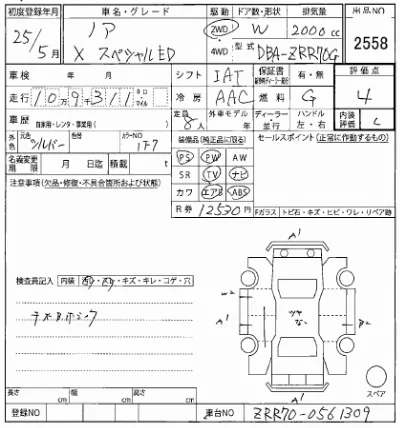 初度登録年月 車名・グレード 駆動 ドア数・形状 排気量 出品NO
25/5月 ノア 2WD W 2000cc 2558
X スペシャルED 4WD 型式 DBA-ZRR70G
車検 年 月 シフト IAT 保証書 有・無 評価点
走行 109311 キロ マイル 冷房 AAC 燃料 G 4
車歴 自家用・レンタ・事業用( ) 定員 8人 外車モデル 年 ディーラー・並行 ハンドル 左・右 内装評価 C
外色 元色 シルバー 色替 カラーNO 1F7 装備品(純正品に限る) セールスポイント(正常に作動するもの)
名義変更期限 月 日迄 積載 t PS PW AW
注意事項(欠品・修復・不具合箇所および状態) SR TV ナビ
カワ エアB ABS
R券 12530円 Fガラス トビ石・キズ・ヒビ・ワレ・リペア跡
A1
検査員記入 内装 汚れ・スレ・キズ・キレ・コゲ・穴
ツヤ
な。
スペア
A1
長さ cm 幅 cm 高さ cm
登録NO 車台NO ZRR70-0561309